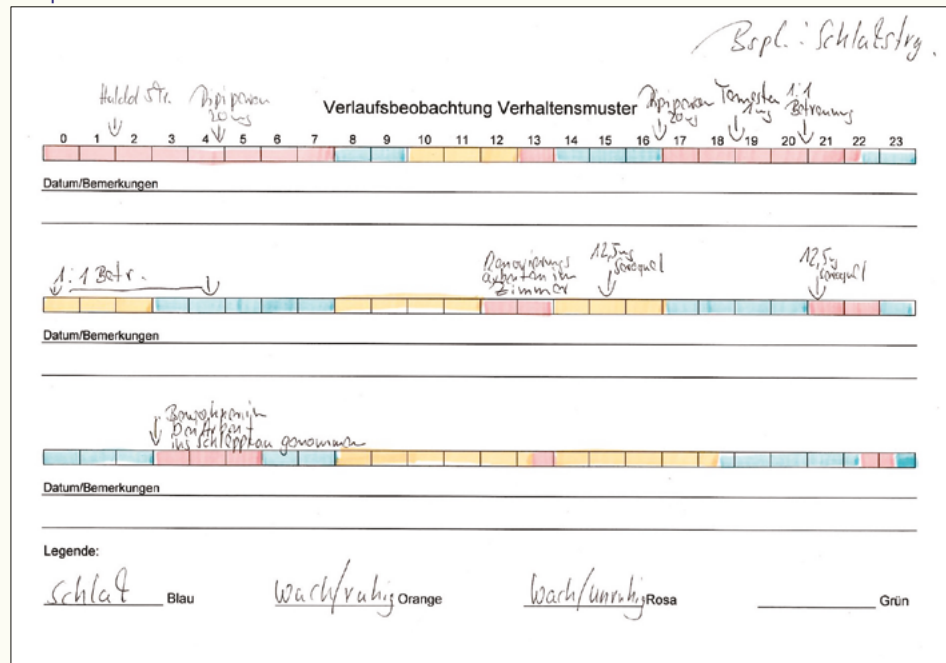 Bspl.: Schlafstrg.
Haldol Str. Dipiperon 20mg
Verlaufsbeobachtung Verhaltensmuster
Dipiperon 20mg
Tavor 1mg
1:1 Betreuung
0 1 2 3 4 5 6 7 8 9 10 11 12 13 14 15 16 17 18 19 20 21 22 23
Datum/Bemerkungen
1:1 Betr.
Renovierungs
arbeiten im
Zimmer
12,5mg
Seroquel
12,5mg
Seroquel
Datum/Bemerkungen
Bewohnerin
bei Arbeit
ins Schlepptau genommen
Datum/Bemerkungen
Legende:
Schlaf Blau wach/ruhig Orange wach/unruhig Rosa Grün